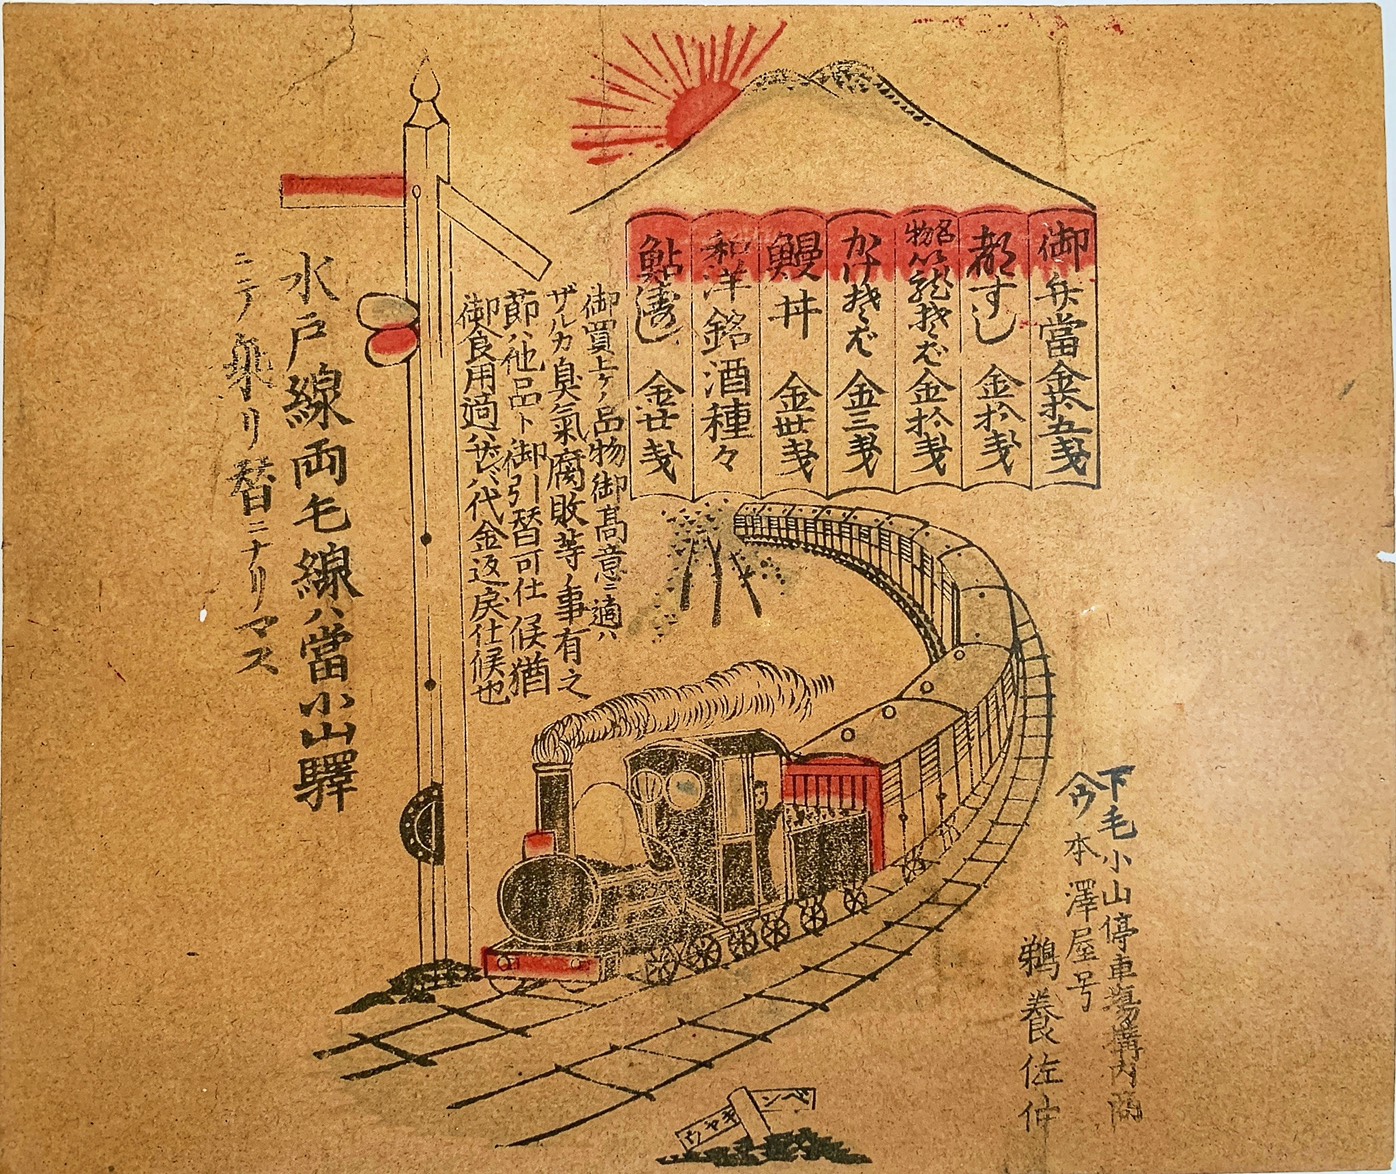 御弁當 金拾五戋
都すし 金拾戋
名物 いづそば 金拾戋
かけそば 金三戋
鰻丼 金丗戋
和洋銘酒種々
鮎壽し 金廿戋
御買上ケノ品物御髙意ニ適ハ
ザルカ臭氣腐敗等ノ事有之
節ハ他品ト御引替可仕候猶
御食用適ハザレバ代金返戻仕候也
水戸線両毛線ハ當小山驛
ニテ乗リ替ニナリマス
下毛小山停車場搆内商
本澤屋号
鵜養佐仲